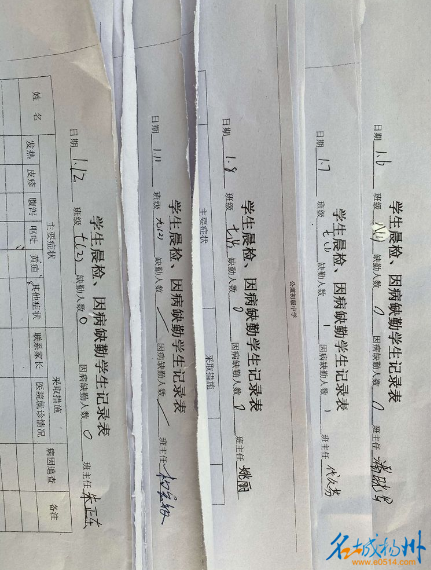 学生晨检、因病缺勤学生记录表
日期 1.6 班级 缺勤人数 0 因病缺勤人数 0 班主任
学生晨检、因病缺勤学生记录表
日期 1.7 班级 缺勤人数 1 因病缺勤人数 1 班主任
学生晨检、因病缺勤学生记录表
日期 1.8 班级 缺勤人数 0 因病缺勤人数 0 班主任
主要症状 采取措施
学生晨检、因病缺勤学生记录表
日期 1.11 班级 缺勤人数 因病缺勤人数 班主任
学生晨检、因病缺勤学生记录表
日期 1.12 班级 七(2) 缺勤人数 0 因病缺勤人数 0 班主任 朱正东
姓名 主要症状 采取措施 病因追查 备注
发热 皮疹 腹泻 呕吐 黄疸 其他症状 联系家长 医院就诊情况
名城扬州
www.e0514.com